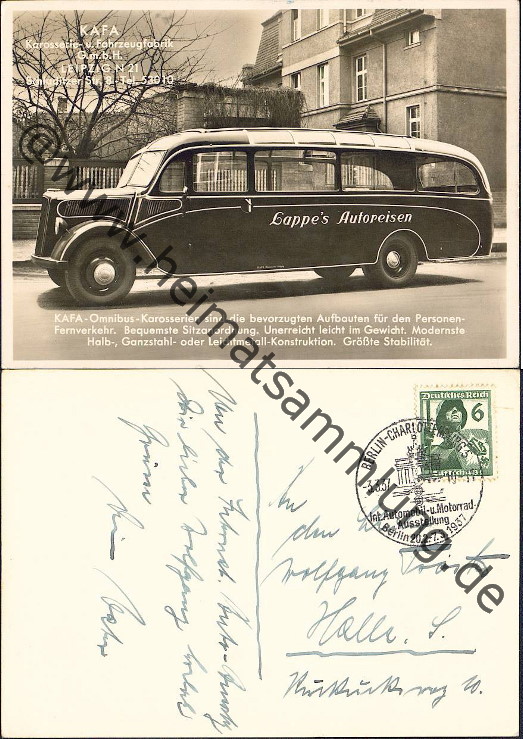 KAFA
Karosserie- u. Fahrzeugfabrik
G.m.b.H.
LEIPZIG N 21
Str. 8 · Tel. 53010
Lappe's Autoreisen
KAFA-Omnibus-Karosserien sind die bevorzugten Aufbauten für den Personen-
Fernverkehr. Bequemste Sitzanordnung. Unerreicht leicht im Gewicht. Modernste
Halb-, Ganzstahl- oder Leichtmetall-Konstruktion. Größte Stabilität.
@www.heimatsammlung.de
Deutsches Reich
6
BERLIN-CHARLOTTENBURG 5
-3.3.37
Int. Automobil-u. Motorrad-
Ausstellung
Berlin 20.2.-7.3.1937
Von der
Wolfgang
An
den
Wolfgang
Halle. S.
Kuckucksweg 10.